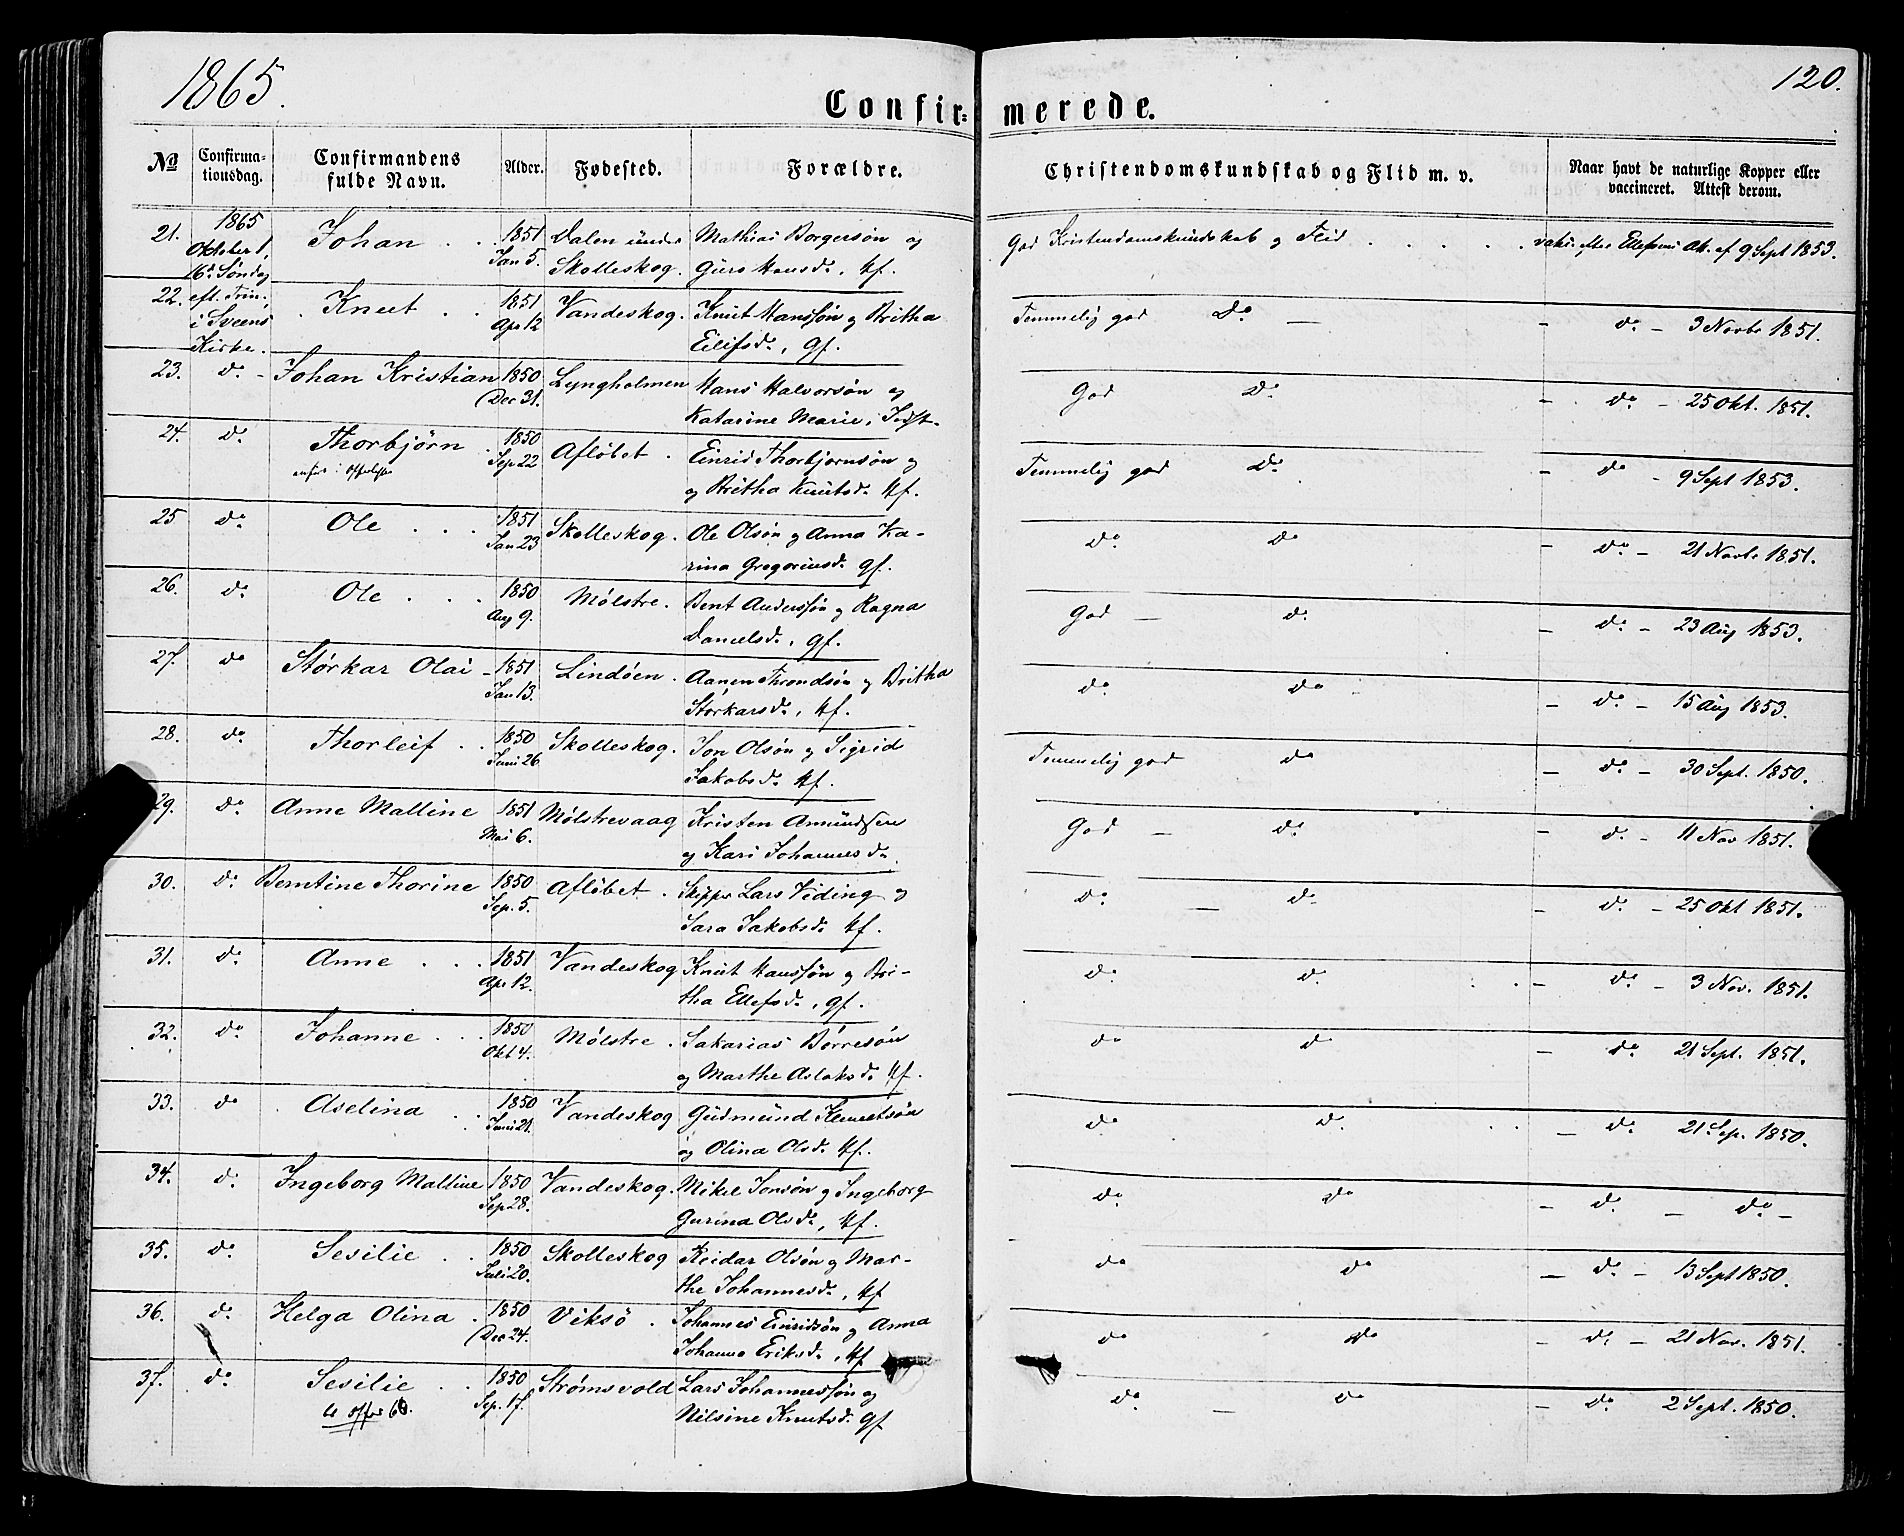 1865.
120.
Confir= merede.
No
Confirma-
tionsdag.
Confirmandens
fulde Navn.
Alder.
Fødested.
Forældre.
Christendomskundskab og Flid m. v.
Naar havt de naturlige Kopper eller
vaccineret. Attest derom.
21. 1865 Johan . . 1851 Dalen under Mathias Borgersøn og God Kristendomskundskab og Flid . . . . . vaks. efter Att. af 9 Sept 1853.
Oktober 1, Jan 5. Skolleskog. Guro Hansd., Kf.
16d Søndag
22. eft. Trin. Knut . . 1851 Vandeskog. Knut Hanssøn og Britha Temmelig god Do — - do - 3 Novbr 1851.
i Sveens Apr 12 Eilifsd., gf.
Kirke.
23. do - Johan Kristian 1850 Lyngholmen Hans Halvorsøn og God Do - do - 25 Okt. 1851.
Dec 31. Katarine Marie,
24. do Thorbjørn . 1850 Afløbet . Einrid Thorbjørnsøn og Temmelig god Do - do - 9 Sept 1853.
Sep 22 og Britha Knutsd. Kf.
25 do Ole . . . 1851 Skolleskog. Ole Olsøn og Anna Ka- do do - do - 21 Novbr 1851.
Jan 23 rina Gregoriusd. gf.
26. do Ole . . . 1850 Mølstre. Bent Anderssøn og Ragna God — do - do - 23 Aug 1853.
Aug 9. Danielsd., gf.
27. do Størkar Olai - 1851 Lindøen. Aanen Throndsøn og Britha do do - do - 15 Aug 1853.
Jan 13. Størkarsd., Kf.
28. do Thorleif . . 1850 Skolleskog. Jon Olsøn og Sigrid Temmelig god do - do - 30 Sept. 1850.
Juni 26 Jakobsd. Kf.
29. do Anne Malline 1851 Mølstrevaag Kristen Amundsen God — do - do - 11 Nov 1851.
Mai 6. og Kari Johannesd.
30. do Berntine Thorine 1850 Afløbet . Skipper Lars Viding og do — do - do - 25 Okt 1851.
Sep. 5. Sara Jakobsd. Kf.
31. do Anne . . . 1851 Vandeskog Knut Hanssøn og Bri- do do - do - 3 Nov. 1851.
Apr 12. tha Ellefsd., gf.
32. do Johanne . . . 1850 Mølstre . Sakarias Børresøn do do - do 21 Sept. 1851.
Okt 4. og Marthe Aslaksd. Kf.
33. do Aselina . . 1850 Vandeskog Gudmund Klemetsøn do do - do 21 Sep. 1850.
Juni 21. og Olina Olsd. Kf.
34. do Ingeborg Malline 1850 Vandeskog. Mikel Jonsøn og Ingeborg do do - do - do -
Sep 28. Gurina Olsd., Kf.
35. do Sesilie . . 1850 Skolleskog Reidar Olsøn og Mar- do do - do - 13 Sept 1850.
Juli 20. the Johannesd., Kf
36. do Helga Olina . 1850 Viksø . Johannes Einridsøn og Anna do do - do - 21 Nov. 1851.
Dec 24. Johanna Eriksd., Kf
37. do Sesilie . . 1850 Strømsvold Lars Johannessøn og do — do - do - 2 Sept. 1850.
Sep. 17. Nilsine Knutsd. gf